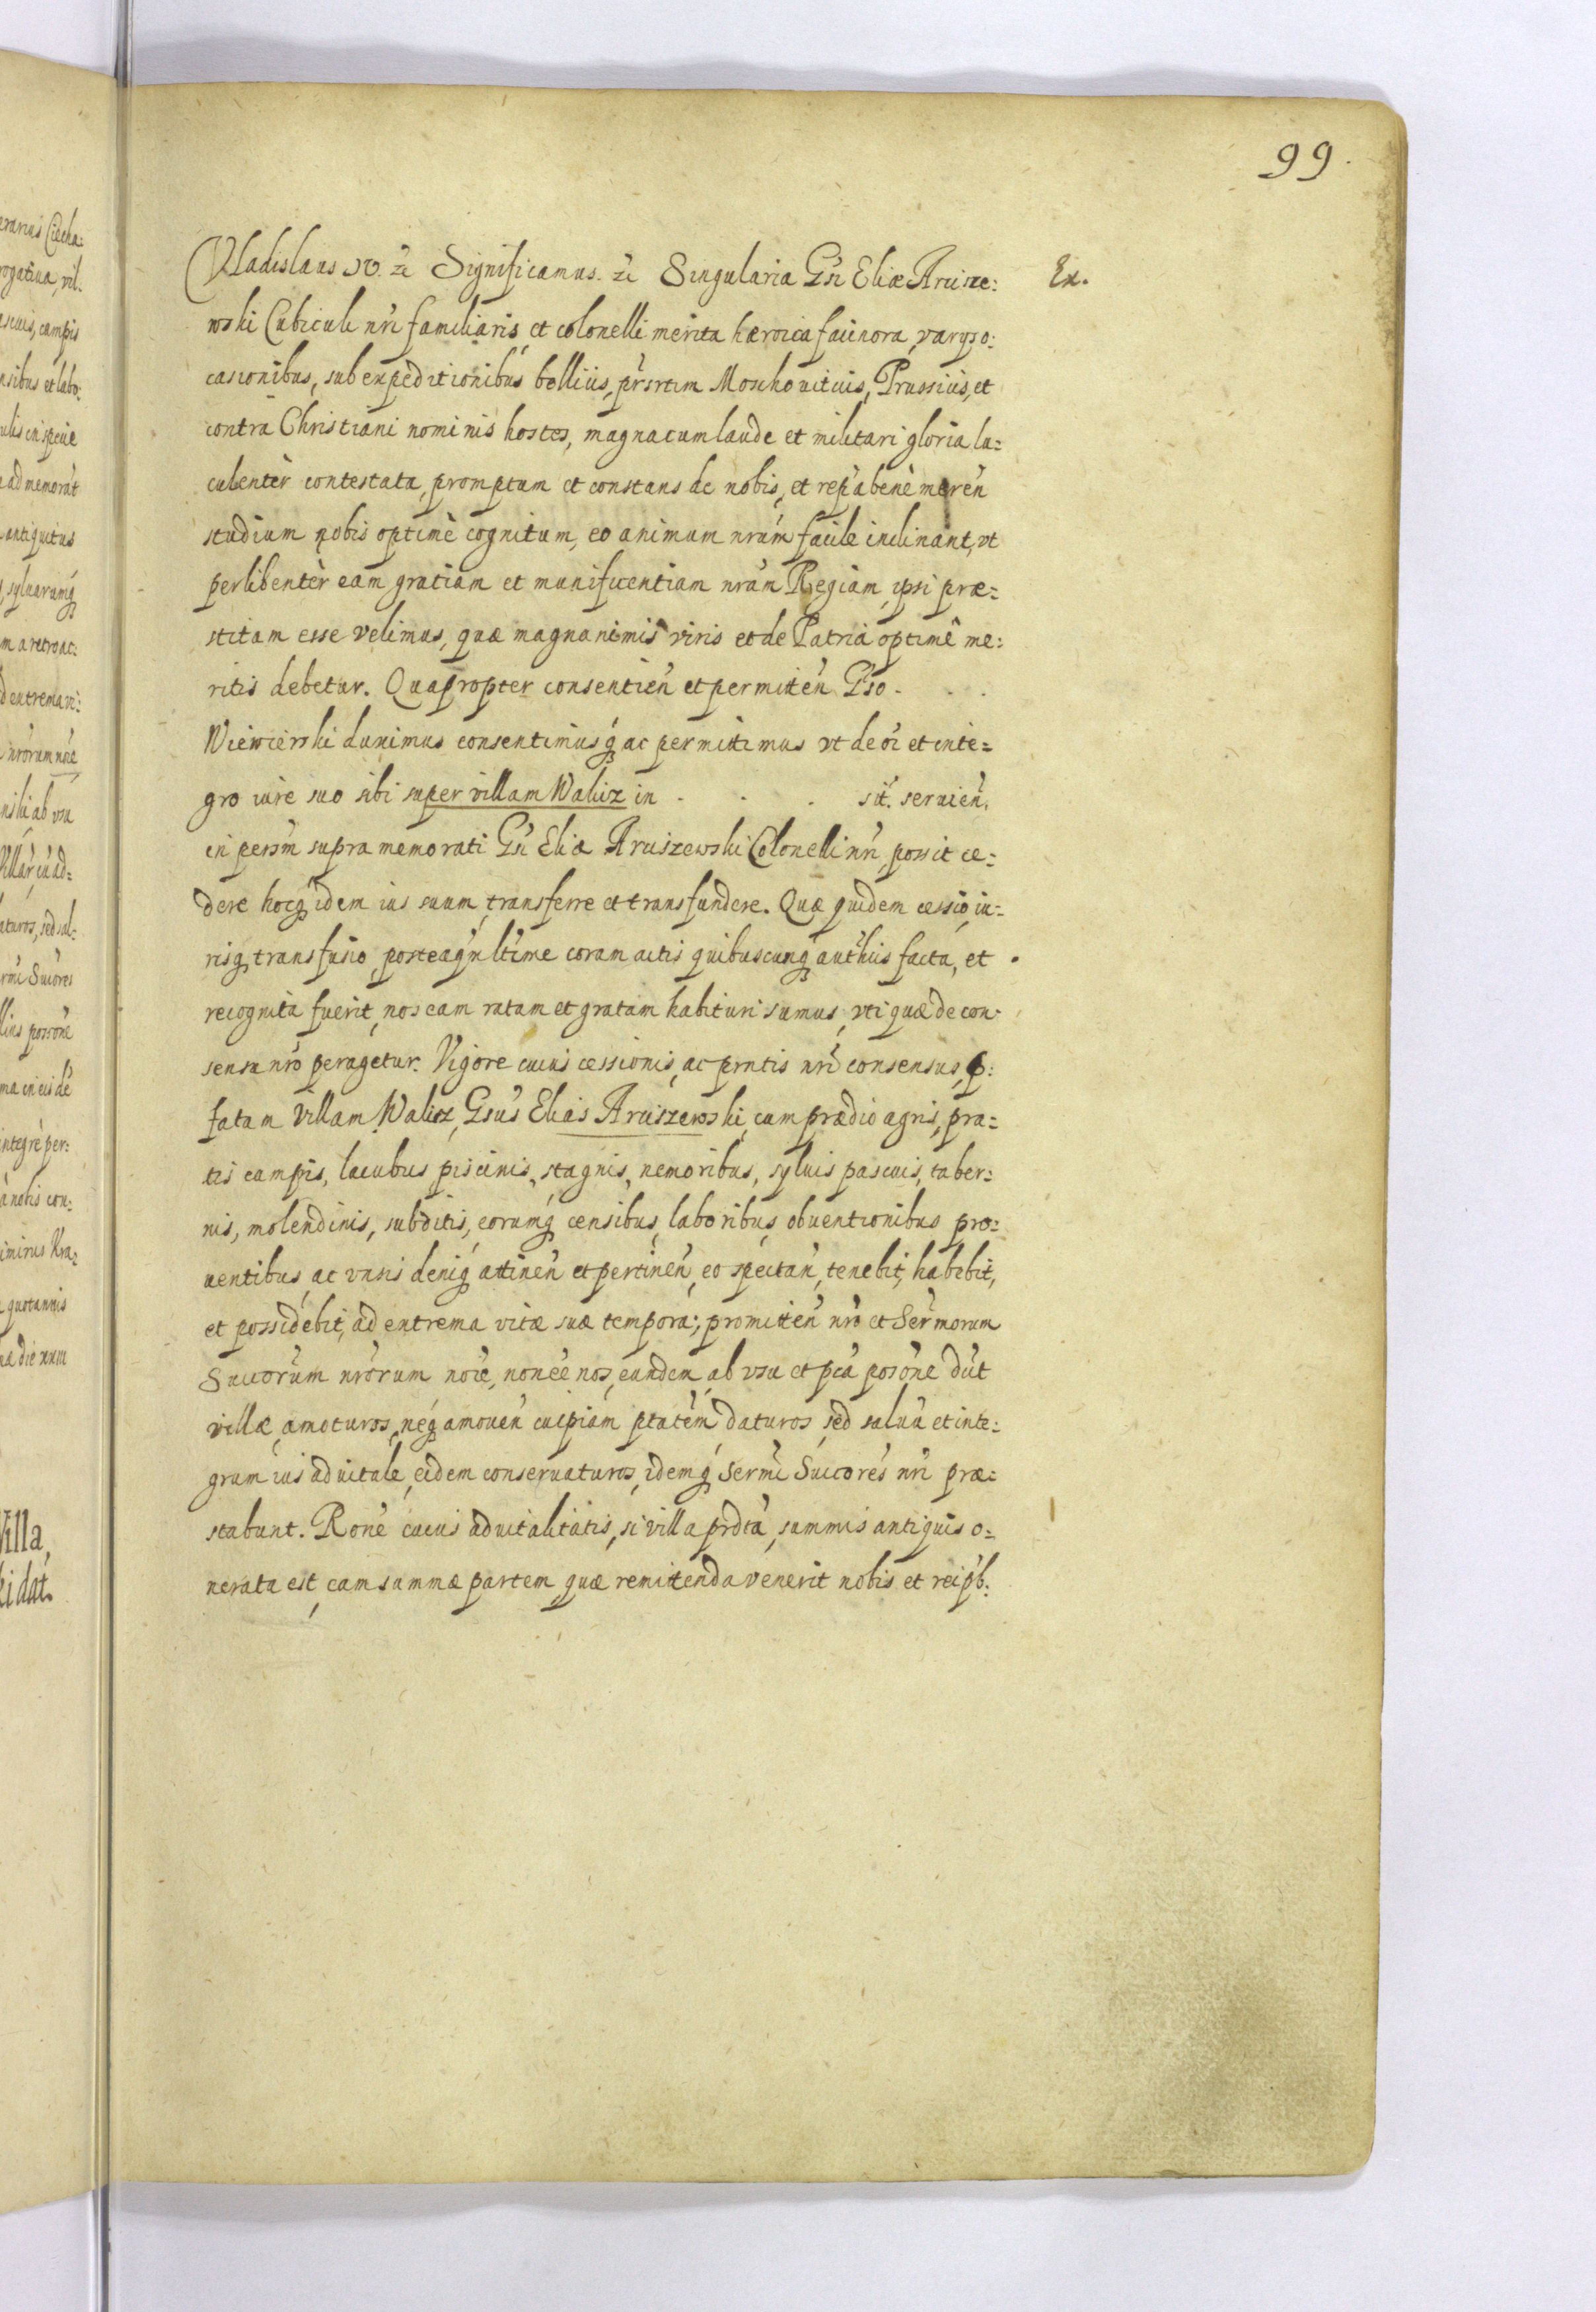 99.
Vladislaus IV. &c Significamus. &c Singularia Gsi Eliæ Arcisze:
wski Cubiculi nri familiaris, et colonelli merita hæroica facinora, varys o:
casionibus, sub expeditionibus bellicis, prsrtim Moschouiticis, Prussicis, et
contra Christiani nominis hostes, magna cum laude et militari gloria lu=
culentèr contestata, promptum et constans de nobis, et repca benè meren
studium nobis optimè cognitum, eo animum nrum facile inclinant, vt
perlibentèr eam gratiam et munificentiam nram Regiam, ipsi præ=
stitam esse velimus, quæ magnanimis viris et de Patria optimê me:
ritis debetur. Quapropter consentien et permitten Gso . . .
Wiewierski duximus consentimusq ac permittimus vt de oi et inte=
gro iure suo sibi super villam Walicz in . . . sit. seruien,
in persm supra memorati Gsi Eliæ Arciszewski Colonelli nri, possit ce=
dere hocq idem ius suum, transferre et transfundere. Quæ quidem cessio, iu=
risq transfusio, posteaqu ltime coram actis quibuscunq authcis facta, et
recognita fuerit, nos eam ratam et gratam habituri sumus, vti quæ de con-
sensu nro peragetur. Vigore cuius cessionis, ac prntis nri consensus, p:
fatam Villam Walicz, Gsus Elias Arciszewski, cum prædio agris, pra=
tis campis, lacubus piscinis, stagnis, nemoribus, syluis pascuis, taber=
nis, molendinis, subditis, eorumq censibus, laboribus, obuentionibus pro=
uentibus, ac vnsis deniq attinen et pertinen, eo spectan, tenebit, habebit,
et possidebit, ad extrema vitæ suæ tempora; promitten nro et Sermorum
Succorum nrorum noie, non ee nos, eundem, ab vsu et pca posone dct
villæ, amoturos, neq amouen cuipiam ptatem daturos, sed saluu et inte:
grum ius aduitale, eidem conseruaturos, idemq Sermi Succores nri præ=
stabunt. Rone cuius aduitalitatis, si villa prdta, summis antiquis o=
nerata est, eam summæ partem, quæ remittenda venerit nobis et reipb:
Ex.